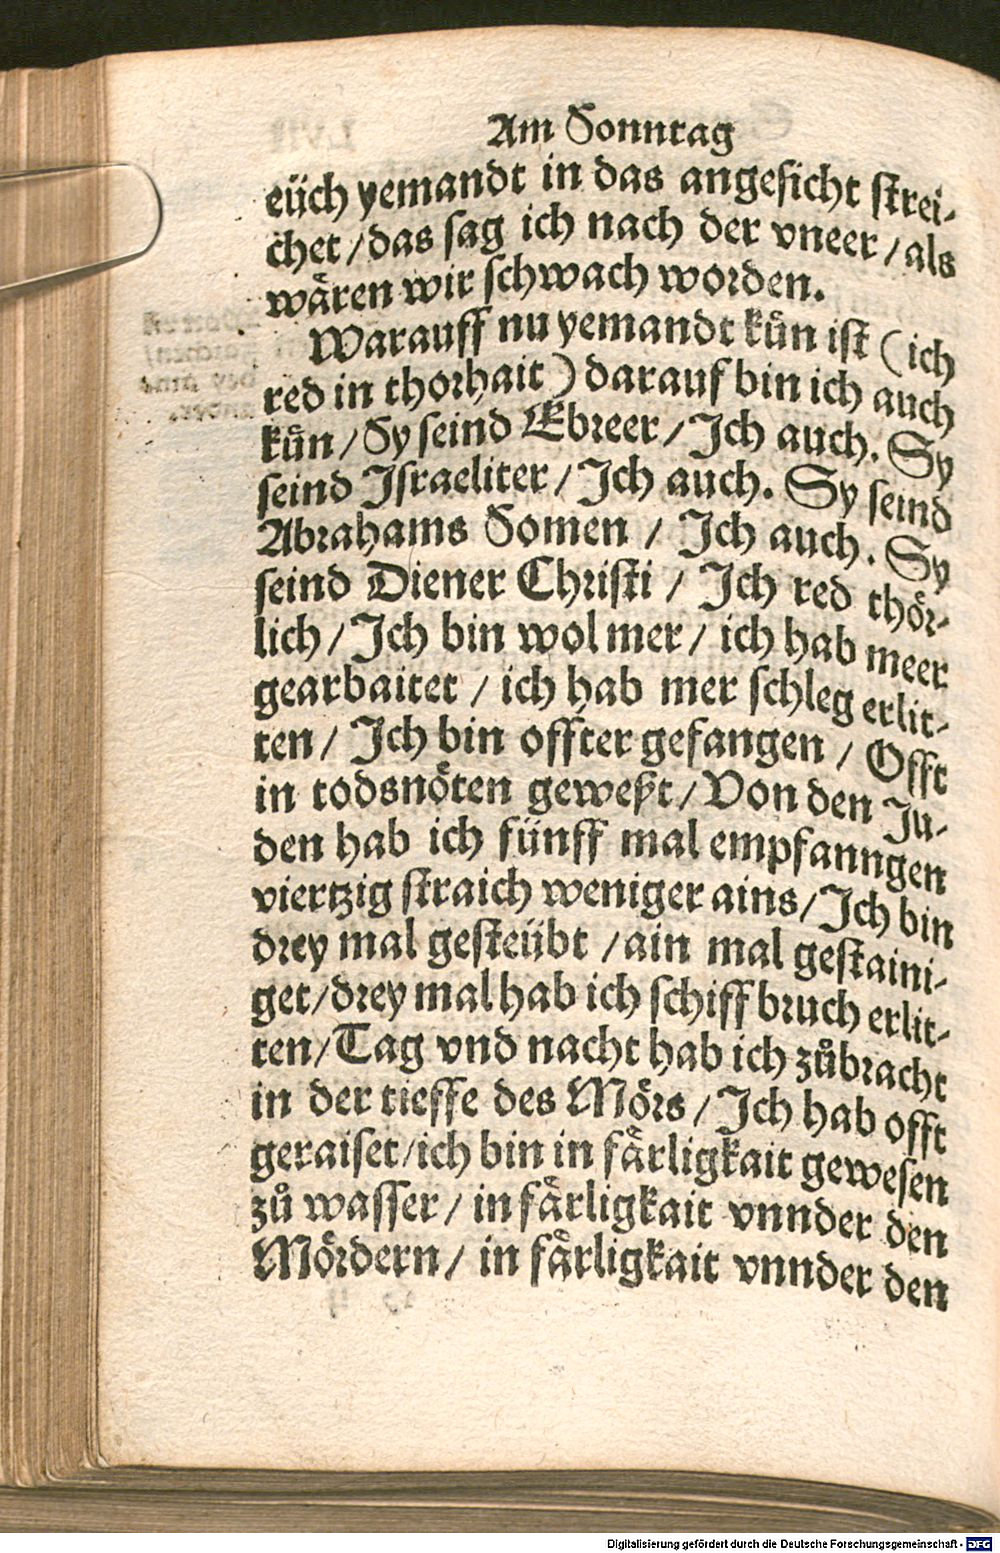 Am Sonntag
eüch yemandt in das angesicht strei-
chet / das sag ich nach der vneer / als
wären wir schwach worden.
Warauff nu yemandt kün ist ( ich
red in thorhait ) darauf bin ich auch
kün / Sy seind Ebreer / Ich auch. Sy
seind Israeliter / Ich auch. Sy seind
Abrahams Somen / Ich auch. Sy
seind Diener Christi / Ich red thör-
lich / Ich bin wol mer / ich hab meer
gearbaitet / ich hab mer schleg erlit-
ten / Ich bin offter gefangen / Offt
in todsnöten geweßt / Von den Ju-
den hab ich fünff mal empfanngen
viertzig straich weniger ains / Ich bin
drey mal gesteübt / ain mal gestaini-
get / drey mal hab ich schiffbruch erlit-
ten / Tag vnd nacht hab ich zůbracht
in der tieffe des Mörs / Ich hab offt
geraiset / ich bin in färligkait gewesen
zů wasser / in färligkait vnnder den
Mördern / in färligkait vnnder den
Digitalisierung gefördert durch die Deutsche Forschungsgemeinschaft - DFG